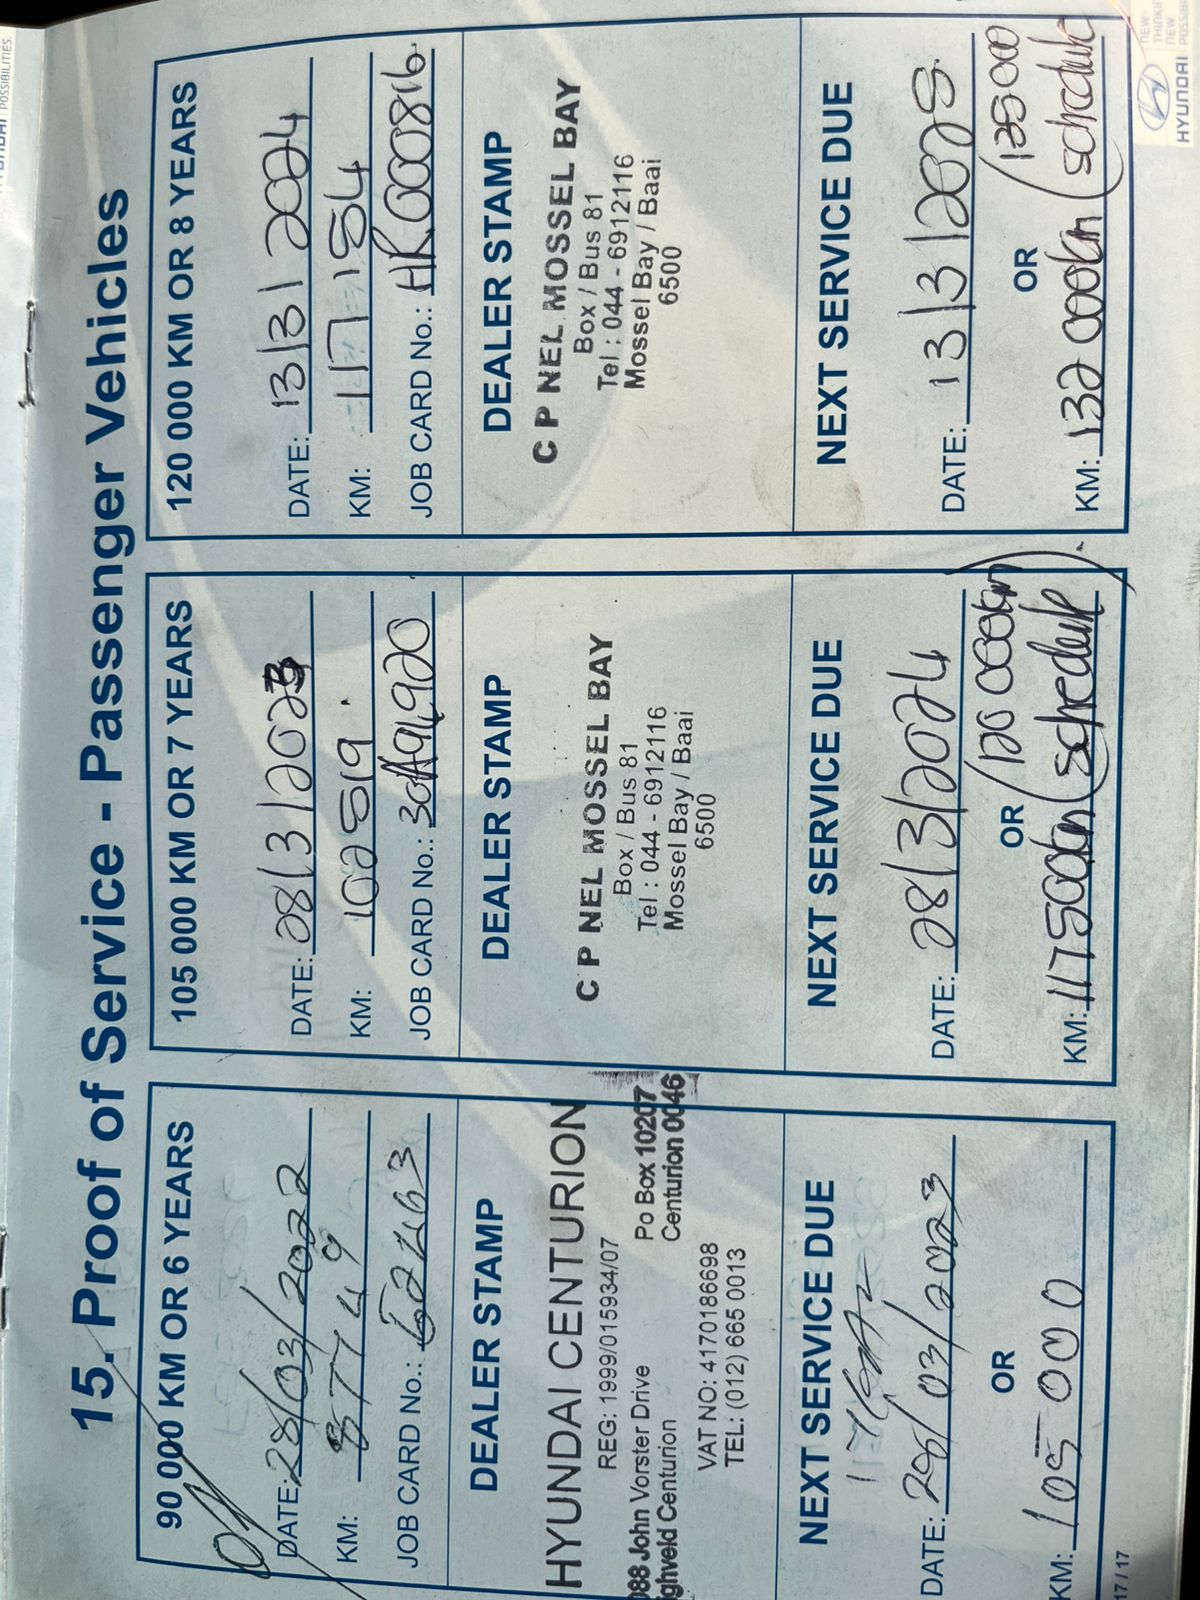 15. Proof of Service - Passenger Vehicles
90 000 KM OR 6 YEARS
DATE: 28/03/2022
KM: 87749
JOB CARD No.:
DEALER STAMP
HYUNDAI CENTURION
REG: 1999/015934/07
088 John Vorster Drive Po Box 10207
ghveld Centurion Centurion 0046
VAT NO: 4170186698
TEL: (012) 665 0013
NEXT SERVICE DUE
DATE: 28/03/2023
OR
KM: 105 000
105 000 KM OR 7 YEARS
DATE: 28/3/2023
KM: 102519
JOB CARD No.:
DEALER STAMP
C P NEL MOSSEL BAY
Box / Bus 81
Tel : 044 - 6912116
Mossel Bay / Baai
6500
NEXT SERVICE DUE
DATE: 28/3/2024
OR (120 000km
KM: 117500km (schedule)
120 000 KM OR 8 YEARS
DATE: 13/3/2024
KM: 117154
JOB CARD No.:
DEALER STAMP
C P NEL MOSSEL BAY
Box / Bus 81
Tel : 044 - 6912116
Mossel Bay / Baai
6500
NEXT SERVICE DUE
DATE: 13/3/2025
OR
KM: 132 000km (schedule
17 / 17
HYUNDAI
NEW
THINKING
NEW
POSSIBILITIES.